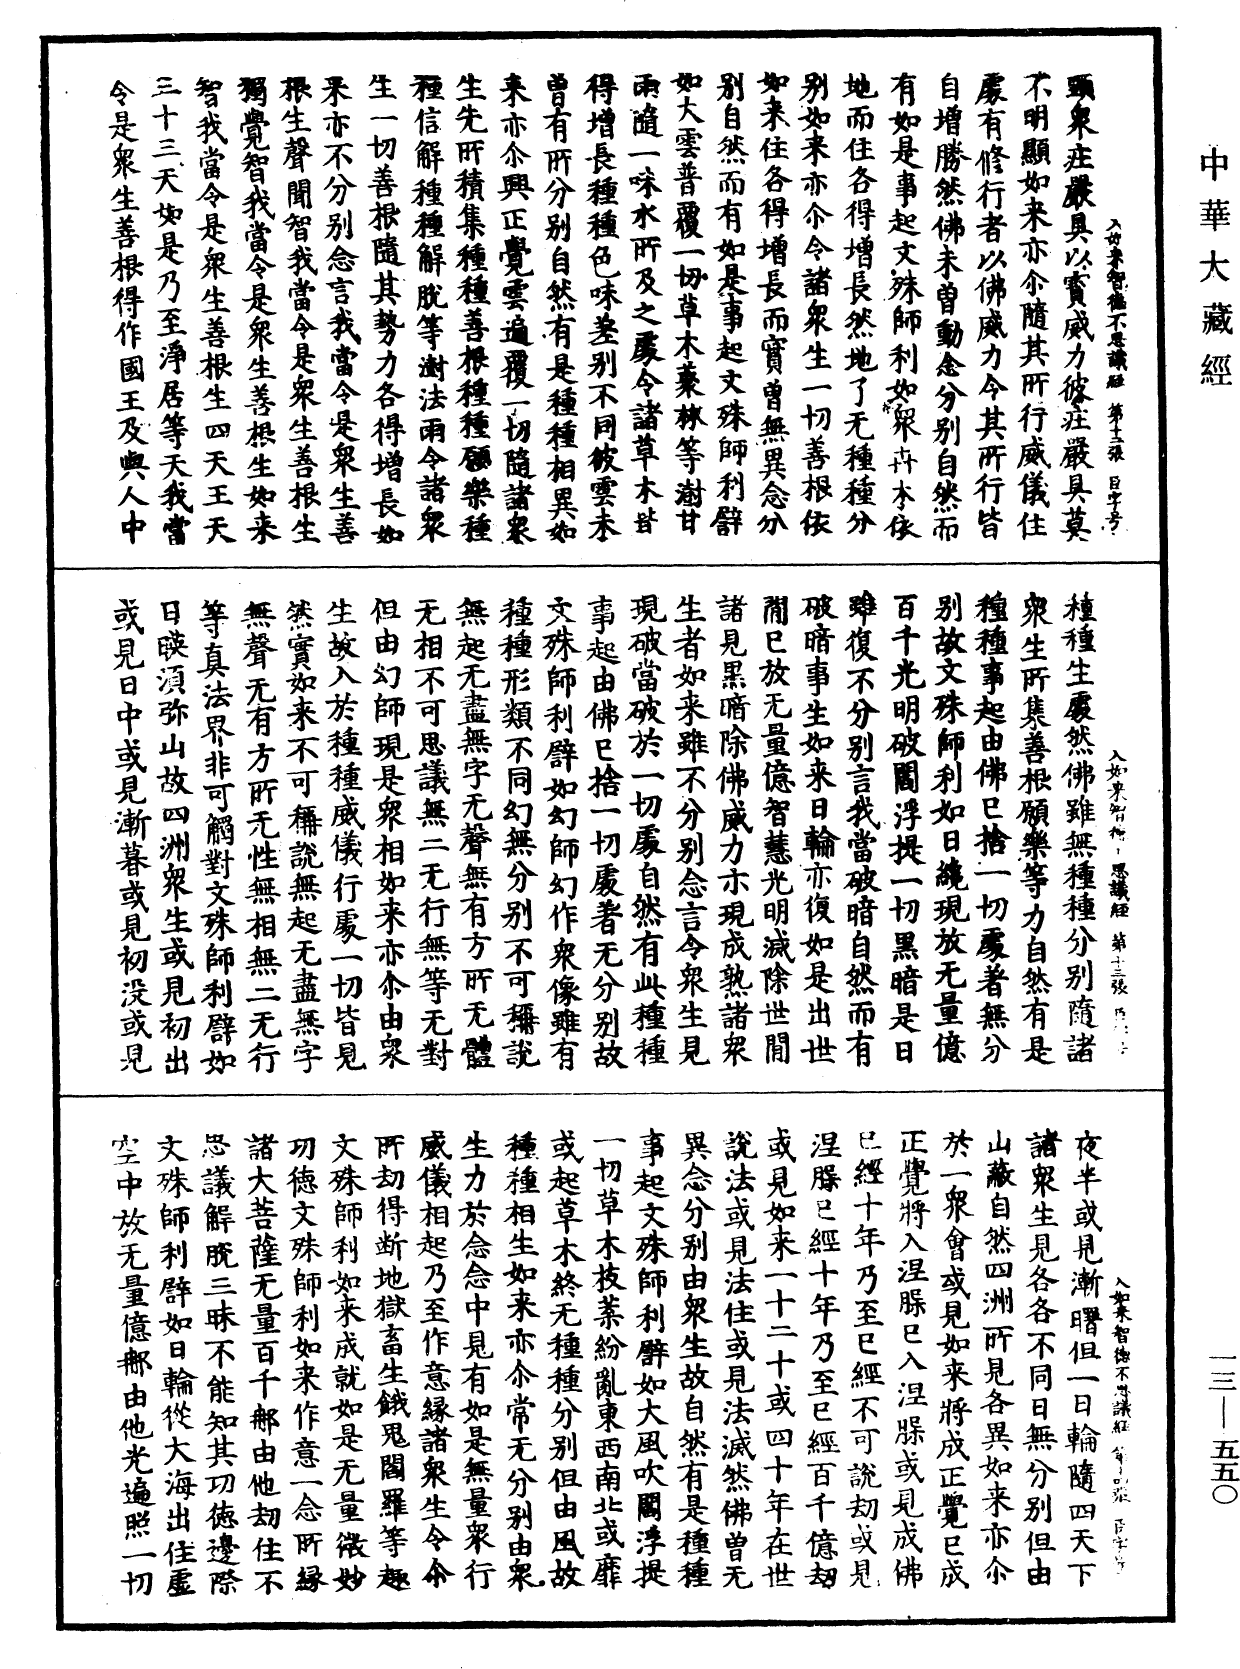 中華大藏經
入如来智德不思議經 第十二張 臣字号
顯衆庄嚴具以寶威力彼庄嚴具莫
不明顯如来亦尒隨其所行威儀住
處有修行者以佛威力令其所行皆
自增勝然佛未曽動念分別自然而
有如是事起文殊師利如衆卉木依
地而住各得增長然地了无種種分
別如来亦尒令諸衆生一切善根依
如来住各得增長而實曽無異念分
別自然而有如是事起文殊師利譬
如大雲普覆一切草木藂林等澍甘
雨隨一味水所及之處令諸草木皆
得增長種種色味差別不同彼雲未
曽有所分別自然有是種種相異如
来亦尒興正覺雲遍覆一切隨諸衆
生先所積集種種善根種種願樂種
種信解種種解脫等澍法雨令諸衆
生一切善根隨其勢力各得增長如
来亦不分別念言我當令是衆生善
根生聲聞智我當令是衆生善根生
獨覺智我當令是衆生善根生如来
智我當令是衆生善根生四天王天
三十三天如是乃至淨居等天我當
令是衆生善根得作國王及與人中
入如来智德不思議經 第十三張
種種生處然佛雖無種種分別隨諸
衆生所集善根願樂等力自然有是
種種事起由佛已捨一切處著無分
別故文殊師利如日纔現放无量億
百千光明破閻浮提一切黑暗是日
雖復不分別言我當破暗自然而有
破暗事生如来日輪亦復如是出世
間已放无量億智慧光明滅除世間
諸見黑暗除佛威力示現成熟諸衆
生者如来雖不分別念言令衆生見
現破當破於一切處自然有此種種
事起由佛已捨一切處著无分別故
文殊師利譬如幻師幻作衆像雖有
種種形類不同幻無分別不可稱說
無起无盡無字无聲無有方所无體
无相不可思議無二无行無等无對
但由幻師現是衆相如来亦尒由衆
生故入於種種威儀行處一切皆見
然實如来不可稱說無起无盡無字
無聲无有方所无性無相無二无行
等真法界非可觸對文殊師利譬如
日暎湏弥山故四洲衆生或見初出
或見日中或見漸暮或見初没或見
入如来智德不思議經
夜半或見漸曙但一日輪隨四天下
諸衆生見各各不同日無分別但由
山蔽自然四洲所見各異如来亦尒
於一衆會或見如来將成正覺已成
正覺將入涅槃已入涅槃或見成佛
已經十年乃至已經不可說劫或見
涅槃已經十年乃至已經百千億劫
或見如来一十二十或四十年在世
說法或見法住或見法滅然佛曽无
異念分別由衆生故自然有是種種
事起文殊師利譬如大風吹閻浮提
一切草木枝葉紛亂東西南北或靡
或起草木終无種種分別但由風故
種種相生如来亦尒常无分別由衆
生力於念念中見有如是無量衆行
威儀相起乃至作意緣諸衆生令今
所劫得斷地獄畜生餓鬼閻羅等趣
文殊師利如来成就如是无量微妙
功德文殊師利如来作意一念所緣
諸大菩薩无量百千那由他劫住不
思議解脫三昧不能知其功德邊際
文殊師利譬如日輪從大海出住虛
空中放无量億那由他光遍照一切
一三—五五〇